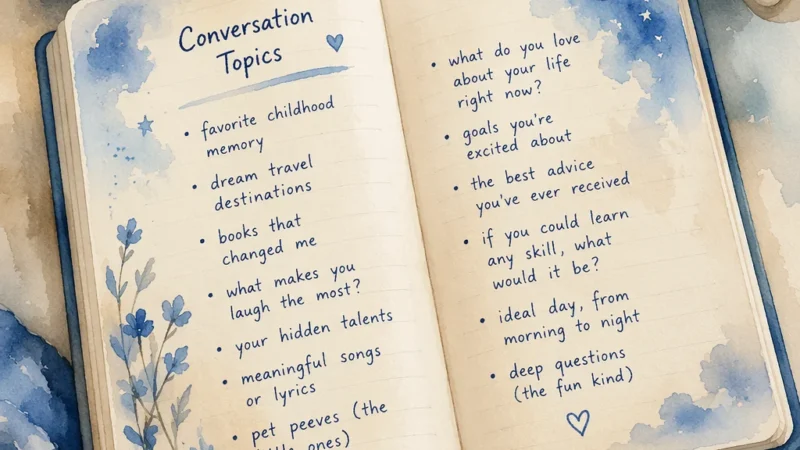 Conversation
Topics
• favorite childhood
memory
• dream travel
destinations
• books that
changed me
• what makes you
laugh the most?
• your hidden talents
• meaningful songs
or lyrics
• pet peeves (the
ones)
• what do you love
about your life
right now?
• goals you're
excited about
• the best advice
you've ever received
• if you could learn
any skill, what
would it be?
• ideal day, from
morning to night
• deep questions
(the fun kind)